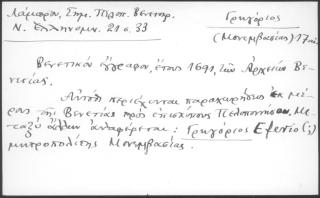 Λάμπρου, Σημ. Πελοπ. Βενετοκρ.
Ν. Ελληνομν. 21 σ. 33
Γρηγόριος
(Μονεμβασίας) 17 αι.
Βενετικόν έγγραφον, έτους 1691, των Αρχείων Βε-
νετίας.
Αυτόθι περιέχονται παραχωρήσεις εκ μέ-
ρους της Βενετίας προς επισκόπους Πελοποννήσου. Με-
ταξύ άλλων αναφέρεται: Γρηγόριος Efenio (;)
μητροπολίτης Μονεμβασίας.